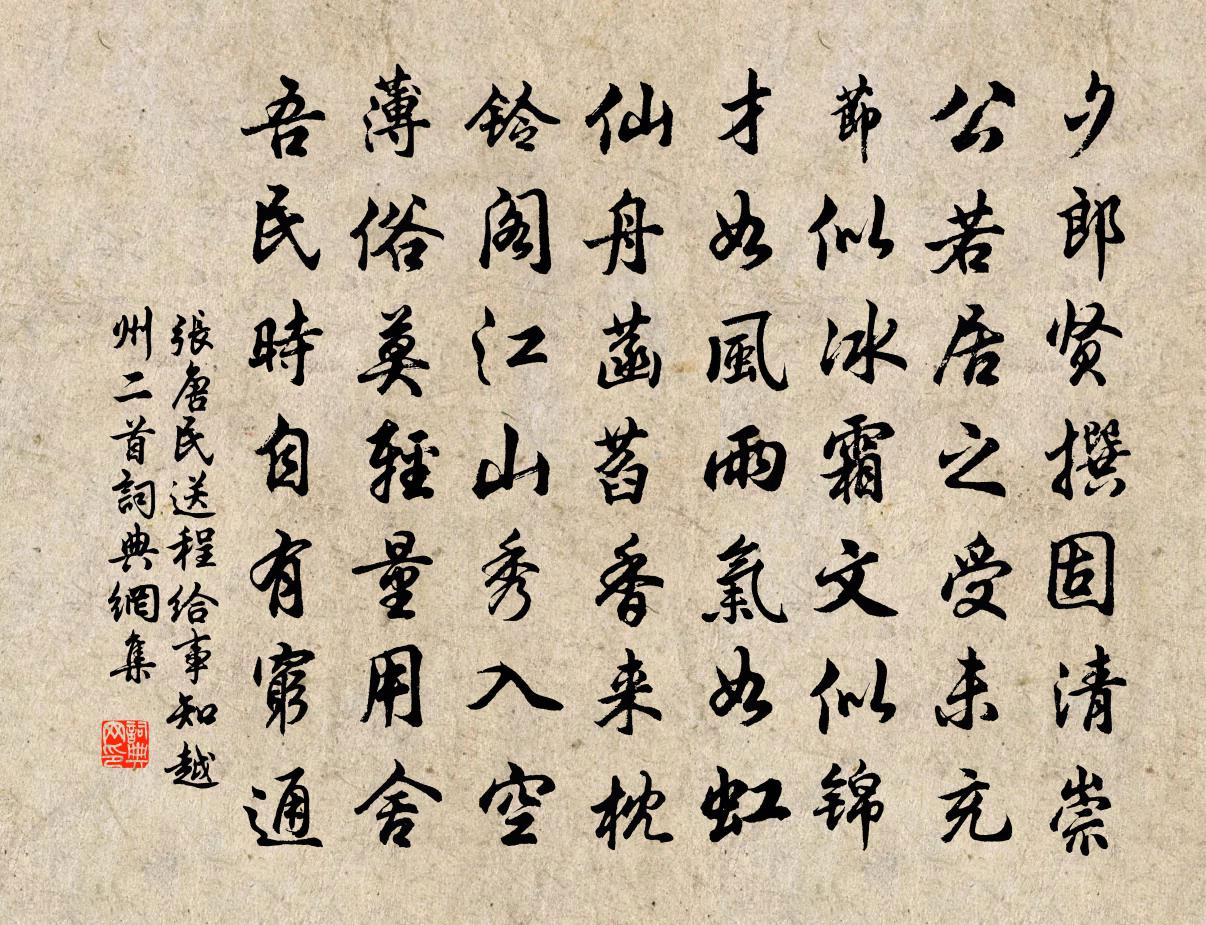 夕郎贤撰固清崇
公若居之受未充
節似冰霜文似錦
才如風雨氣如虹
仙舟菡萏香来枕
鈴阁江山秀入空
薄俗莫輕量用舍
吾民時自有窮通
張唐民送程給事知越
州二首詞典網集
詞典
网印